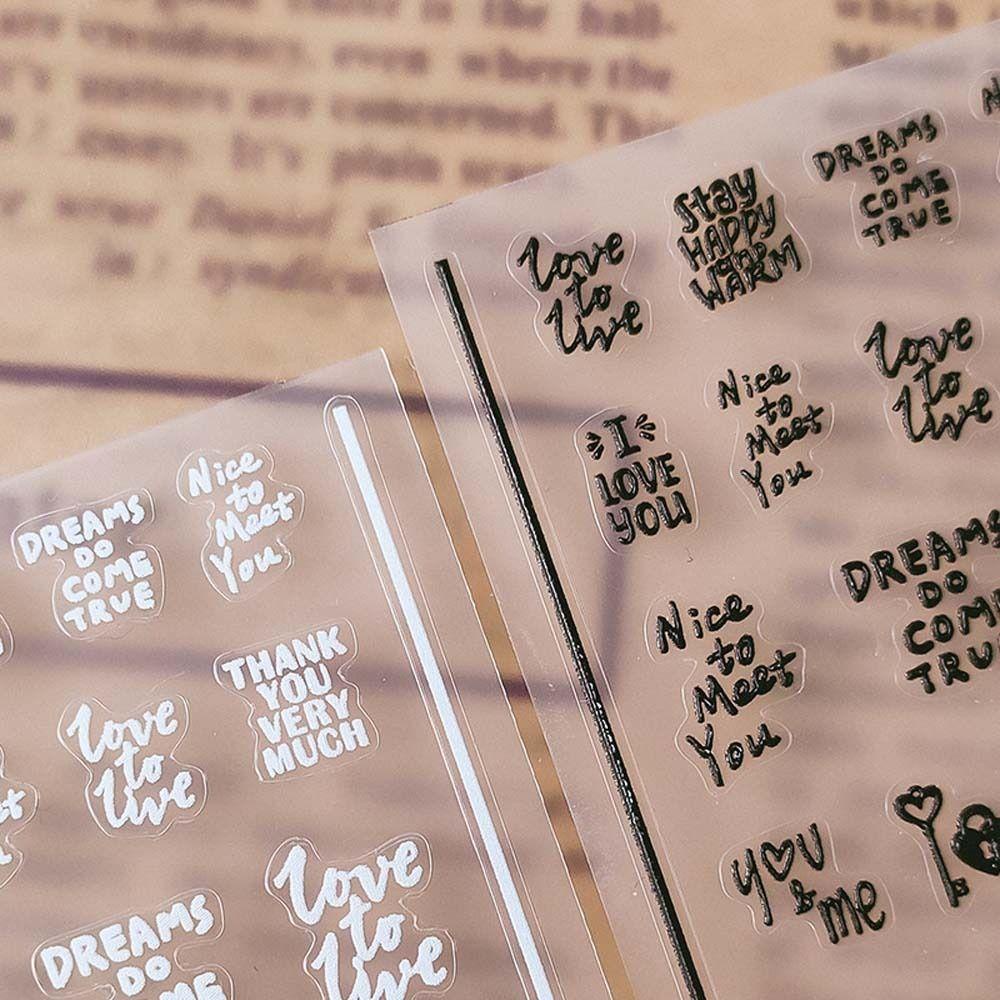 is the hall-
consistency, even where the
matters are concerned. This
away. It's plain
which
Love
to
Live
Stay
HAPPY
and
WARM
DREAMS
DO
COME
TRUE
I
LOVE
YOU
Nice
to
Meet
You
Love
to
Live
Nice
to
Meet
You
DREAMS
DO
COME
TRUE
you
& me
DREAMS
DO
COME
TRUE
Nice
to
Meet
You
Love
to
Live
THANK
YOU
VERY
MUCH
DREAMS
DO
Love
to
Live